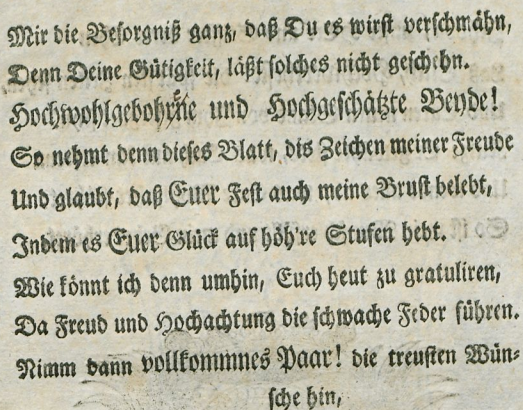 Mir die Besorgniß ganz, daß Du es wirst verschmähn,
Denn Deine Gütigkeit, läßt solches nicht geschehn.
Hochwohlgebohrne und Hochgeschätzte Beyde!
So nehmt denn dieses Blatt, dis Zeichen meiner Freude
Und glaubt, daß Euer Fest auch meine Brust belebt,
Indem es Euer Glück auf höh're Stufen hebt.
Wie könnt ich denn umhin, Euch heut zu gratuliren,
Da Freud und Hochachtung die schwache Feder führen.
Nimm dann vollkommnes Paar! die treusten Wün-
sche hin,